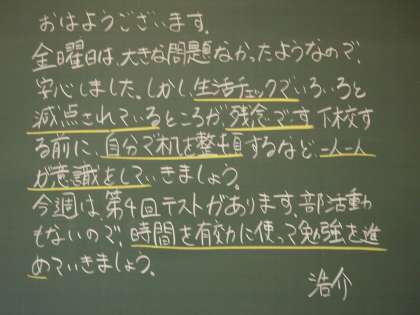 おはようございます.
金曜日は、大きな問題なかったようなので、
安心しました。しかし、生活チェックでいろいろと
減点されているところが、残念です。下校す
る前に、自分で机を整頓するなど、一人一人
が意識をしていきましょう。
今週は、第4回テストがあります。部活動
もないので、時間を有効に使って勉強を進
めていきましょう。
浩介